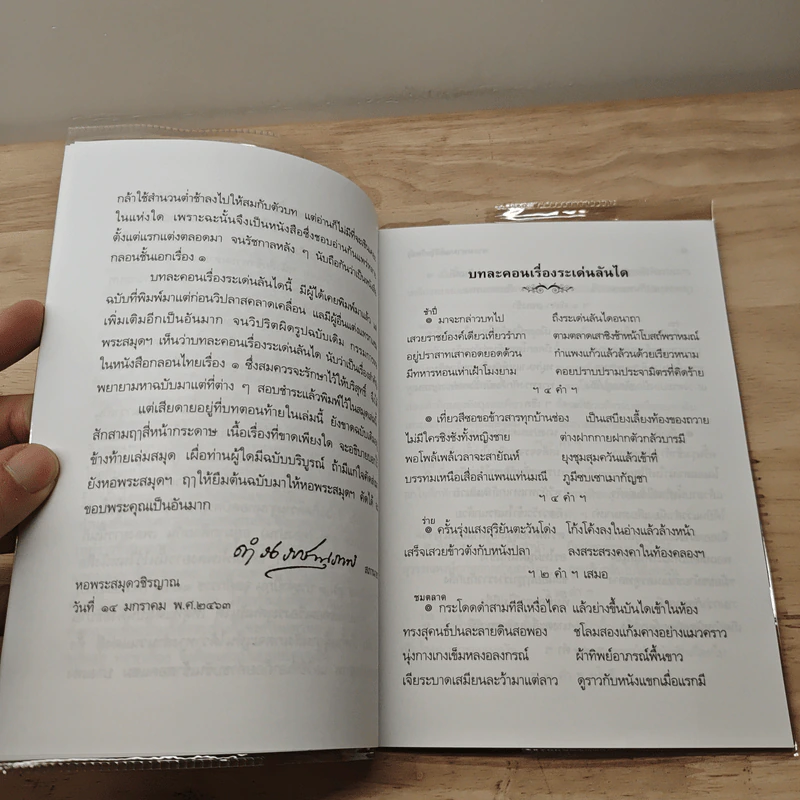 กล้าใช้สำนวนต่ำช้าลงไปให้สมกับตัวบท แต่อ่านก็ไม่มีที่จะเขิน
ในแห่งใด เพราะฉะนั้นจึงเป็นหนังสือซึ่งชอบอ่านกันแพร่หลาย
ตั้งแต่แรกแต่งตลอดมา จนรัชกาลหลัง ๆ นับถือกันว่าเป็นหนังสือ
กลอนชั้นเอกเรื่อง ๑
บทละคอนเรื่องระเด่นลันไดนี้ มีผู้ได้เคยพิมพ์มาแล้ว
ฉบับที่พิมพ์มาแต่ก่อนวิปลาสคลาดเคลื่อน แลมีผู้อื่นแต่งแทรก
เพิ่มเติมอีกเป็นอันมาก จนวิปริตผิดรูปฉบับเดิม กรรมการ
พระสมุดฯ เห็นว่าบทละคอนเรื่องระเด่นลันได นับว่าเป็นเรื่องสำคัญ
ในหนังสือกลอนไทยเรื่อง ๑ ซึ่งสมควรจะรักษาไว้ให้บริสุทธิ์ จึงได้
พยายามหาฉบับมาแต่ที่ต่าง ๆ สอบชำระแล้วพิมพ์ไว้ในสมุดเล่มนี้
แต่เสียดายอยู่ที่บทตอนท้ายในเล่มนี้ ยังขาดฉบับเดิม
สักสามฤๅสี่หน้ากระดาษ เนื้อเรื่องที่ขาดเพียงใด จะอธิบาย
ข้างท้ายเล่มสมุด เผื่อท่านผู้ใดมีฉบับบริบูรณ์ ถ้ามีแก่ใจคัด
ยังหอพระสมุดฯ ฤๅให้ยืมต้นฉบับมาให้หอพระสมุดฯ คัดได้
ขอบพระคุณเป็นอันมาก
หอพระสมุดวชิรญาณ
วันที่ ๑๔ มกราคม พ.ศ.๒๔๖๓
บทละคอนเรื่องระเด่นลันได
ช้าปี่
๏ มาจะกล่าวบทไป ถึงระเด่นลันไดอนาถา
เสวยราชย์องค์เดียวเที่ยวรำภา ตามตลาดเสาชิงช้าหน้าโบสถ์พราหมณ์
อยู่ปราสาทเสาคอดยอดด้วน กำแพงแก้วแล้วล้วนด้วยเรียวหนาม
มีทหารหอนเห่าเฝ้าโมงยาม คอยปราบปรามประจามิตรที่คิดร้าย
ฯ ๔ คำ ฯ
๏ เที่ยวสีซอขอข้าวสารทุกบ้านช่อง เป็นเสบียงเลี้ยงท้องของถวาย
ไม่มีใครชิงชังทั้งหญิงชาย ต่างฝากกายฝากตัวกลัวบารมี
พอโพล้เพล้เวลาจะสายัณห์ ยุงชุมสุมควันแล้วเข้าที่
บรรทมเหนือเสื่อลำแพนแท่นมณี ภูมีซบเซาเมากัญชา
ฯ ๔ คำ ฯ
ร่าย
๏ ครั้นรุ่งแสงสุริยันตะวันโด่ง โก้งโค้งลงในอ่างแล้วล้างหน้า
เสร็จเสวยข้าวตังกับหนังปลา ลงสระสรงคงคาในท้องคลองฯ
ฯ ๒ คำ ฯ เสมอ
ชมตลาด
๏ กระโดดดำสามทีสีเหงื่อไคล แล้วย่างขึ้นบันไดเข้าในห้อง
ทรงสุคนธ์ปนละลายดินสอพอง ชโลมสองแก้มคางอย่างแมวคราว
นุ่งกางเกงเข็มหลงอลงกรณ์ ผ้าทิพย์อาภรณ์พื้นขาว
เจียระบาดเสมียนละว้ามาแต่ลาว ดูราวกับหนังแขกเมื่อแรกมี